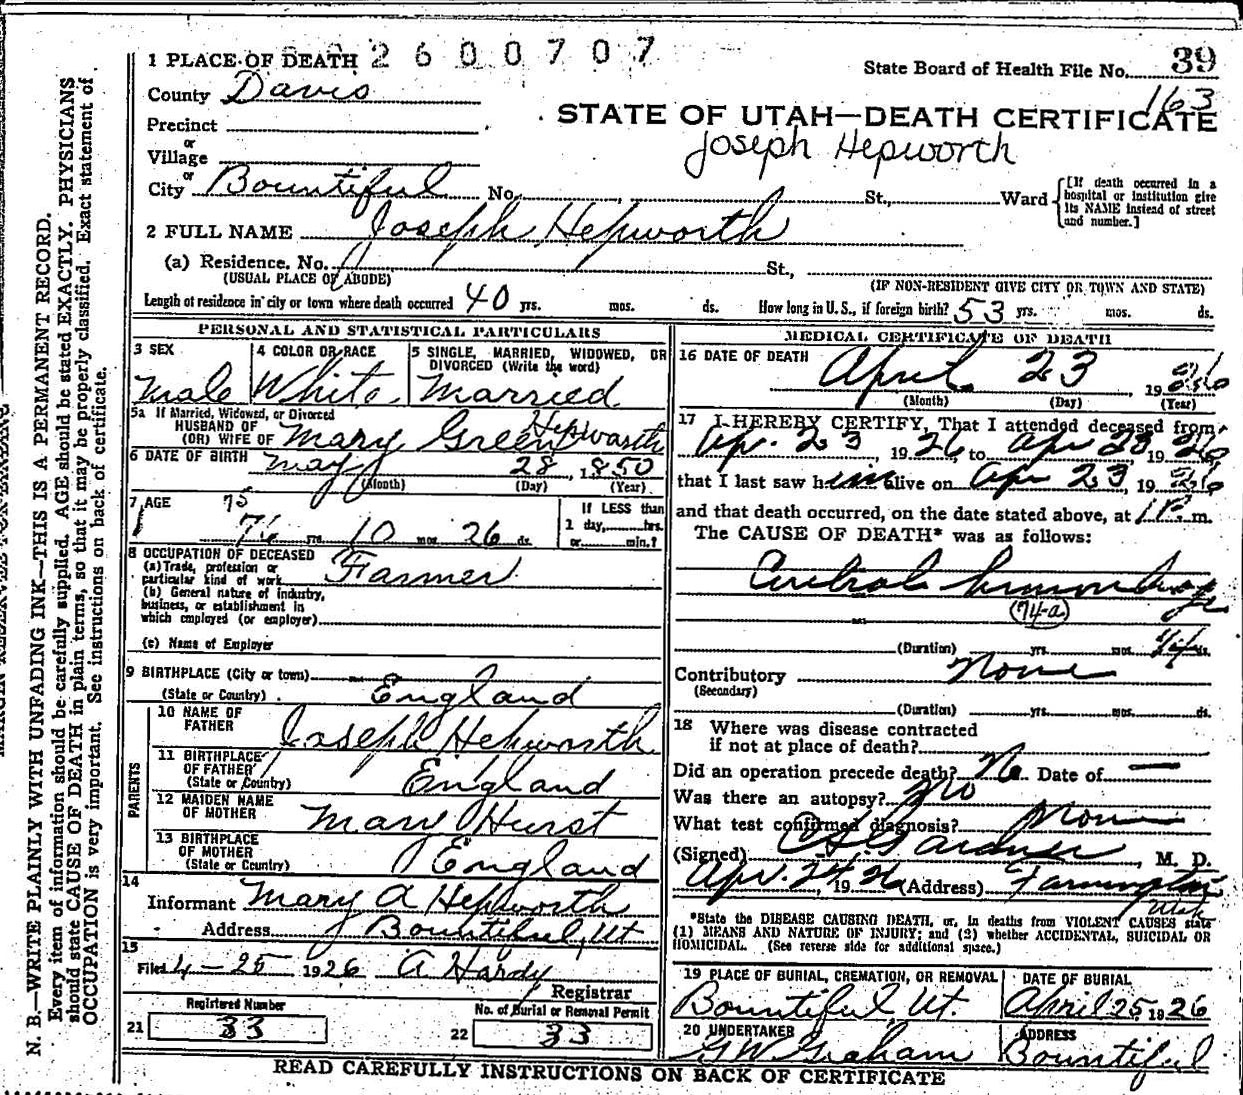 2600707
39
1 PLACE OF DEATH
State Board of Health File No.
163
County Davis
STATE OF UTAH—DEATH CERTIFICATE
Precinct
Joseph Hepworth
or
Village
or
City Bountiful No. St., Ward
[If death occurred in a hospital or institution give its NAME instead of street and number.]
2 FULL NAME Joseph Hepworth
(a) Residence. No. St.,
(USUAL PLACE OF ABODE) (IF NON-RESIDENT GIVE CITY OR TOWN AND STATE)
Length of residence in city or town where death occurred 40 yrs. mos. ds. How long in U.S., if foreign birth? 53 yrs. mos. ds.
PERSONAL AND STATISTICAL PARTICULARS
3 SEX
Male
4 COLOR OR RACE
White
5 SINGLE, MARRIED, WIDOWED, OR DIVORCED (Write the word)
Married
5a If Married, Widowed, or Divorced
HUSBAND OF
(OR) WIFE OF Mary Green Hepworth
6 DATE OF BIRTH May 28, 1850
(Month) (Day) (Year)
7 AGE
75
yrs. 10 mos. 26 ds.
If LESS than
1 day, hrs.
or min.?
8 OCCUPATION OF DECEASED
(a) Trade, profession or
particular kind of work Farmer
(b) General nature of industry,
business, or establishment in
which employed (or employer)
(c) Name of Employer
9 BIRTHPLACE (City or town)
(State or Country) England
PARENTS
10 NAME OF FATHER Joseph Hepworth
11 BIRTHPLACE OF FATHER (State or Country) England
12 MAIDEN NAME OF MOTHER Mary Hurst
13 BIRTHPLACE OF MOTHER (State or Country) England
14
Informant Mary A Hepworth
Address Bountiful, Ut
15
Filed 4-25 1926 A Hardy
Registrar
Registered Number
21 33
No. of Burial or Removal Permit
22 33
MEDICAL CERTIFICATE OF DEATH
16 DATE OF DEATH
April 23, 19
(Month) (Day) (Year)
17 I HEREBY CERTIFY, That I attended deceased from
Ap. 23, 1926, to Apr 23 1926
that I last saw him alive on Apr 23, 1926
and that death occurred, on the date stated above, at 1 P. m.
The CAUSE OF DEATH* was as follows:
Cerebral hemorrhage
(74-a)
(Duration) yrs. mos. ds.
Contributory None
(Secondary)
(Duration) yrs. mos. ds.
18 Where was disease contracted
if not at place of death?
Did an operation precede death? No Date of —
Was there an autopsy? No
What test confirmed diagnosis? None
(Signed) Gardner, M. D.
Apr. 24, 1926 (Address) Farmington
Utah
*State the DISEASE CAUSING DEATH, or, in deaths from VIOLENT CAUSES state
(1) MEANS AND NATURE OF INJURY; and (2) whether ACCIDENTAL, SUICIDAL OR
HOMICIDAL. (See reverse side for additional space.)
19 PLACE OF BURIAL, CREMATION, OR REMOVAL
Bountiful, Ut.
DATE OF BURIAL
April 25 1926
20 UNDERTAKER
GW Graham
ADDRESS
Bountiful
READ CAREFULLY INSTRUCTIONS ON BACK OF CERTIFICATE
N. B.—WRITE PLAINLY WITH UNFADING INK—THIS IS A PERMANENT RECORD.
Every item of information should be carefully supplied. AGE should be stated EXACTLY. PHYSICIANS
should state CAUSE OF DEATH in plain terms, so that it may be properly classified. Exact statement of
OCCUPATION is very important. See instructions on back of certificate.